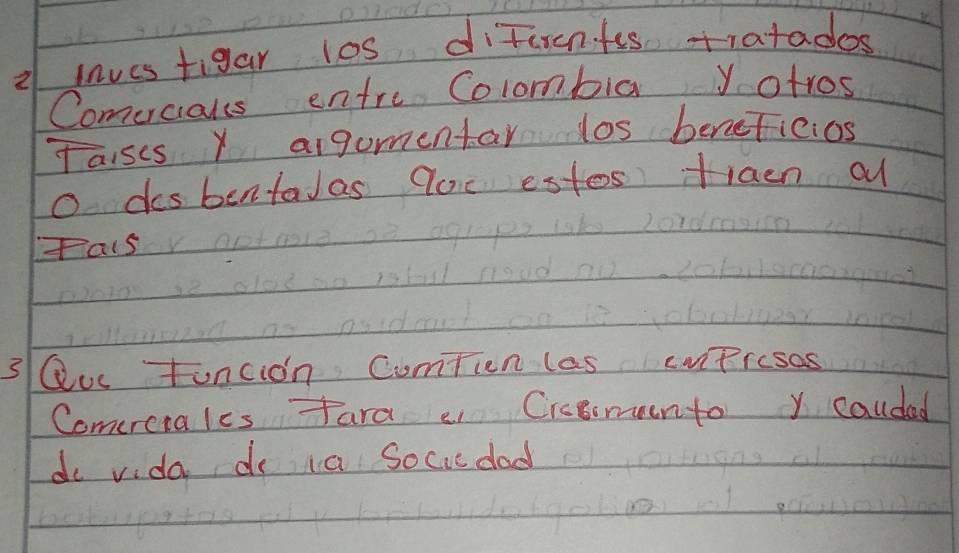 2 Investigar los diferentes tratados
Comerciales entre Colombia y otros
Paises y argumentar los beneficios
o desbentajas que estos traen al
Pais
3 Que función Cumplen las empresas
Comerciales Para el Crecimiento y calidad
de vida de la Sociedad